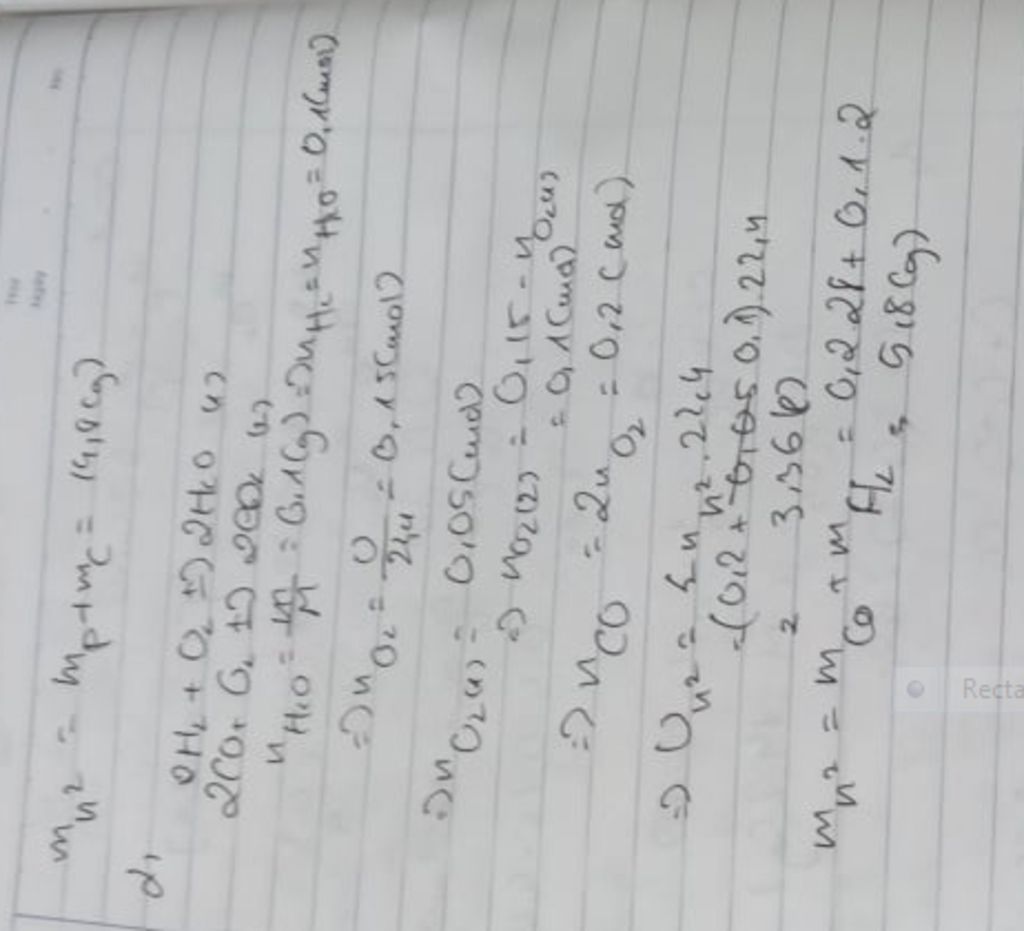 m_h² = m_P + m_C = 14,8(g)
d,
2H₂ + O₂ → 2H₂O (1)
2CO + O₂ → 2CO₂ (2)
n_H₂O = m/M = 0,1(g) => n_H₂ = n_H₂O = 0,1(mol)
=> n_O₂ = V/22,4 = 0,15(mol)
=> n_O₂(1) = 0,05(mol)
=> n_O₂(2) = 0,15 - n_O₂(1)
= 0,1(mol)
=> n_CO = 2n_O₂ = 0,2(mol)
=> V_h² = n_h².22,4
=(0,2 + 0,1).22,4
= 3,36(l)
m_h² = m_CO + m_H₂ = 0,2.28 + 0,1.2
= 5,8(g)
Recta